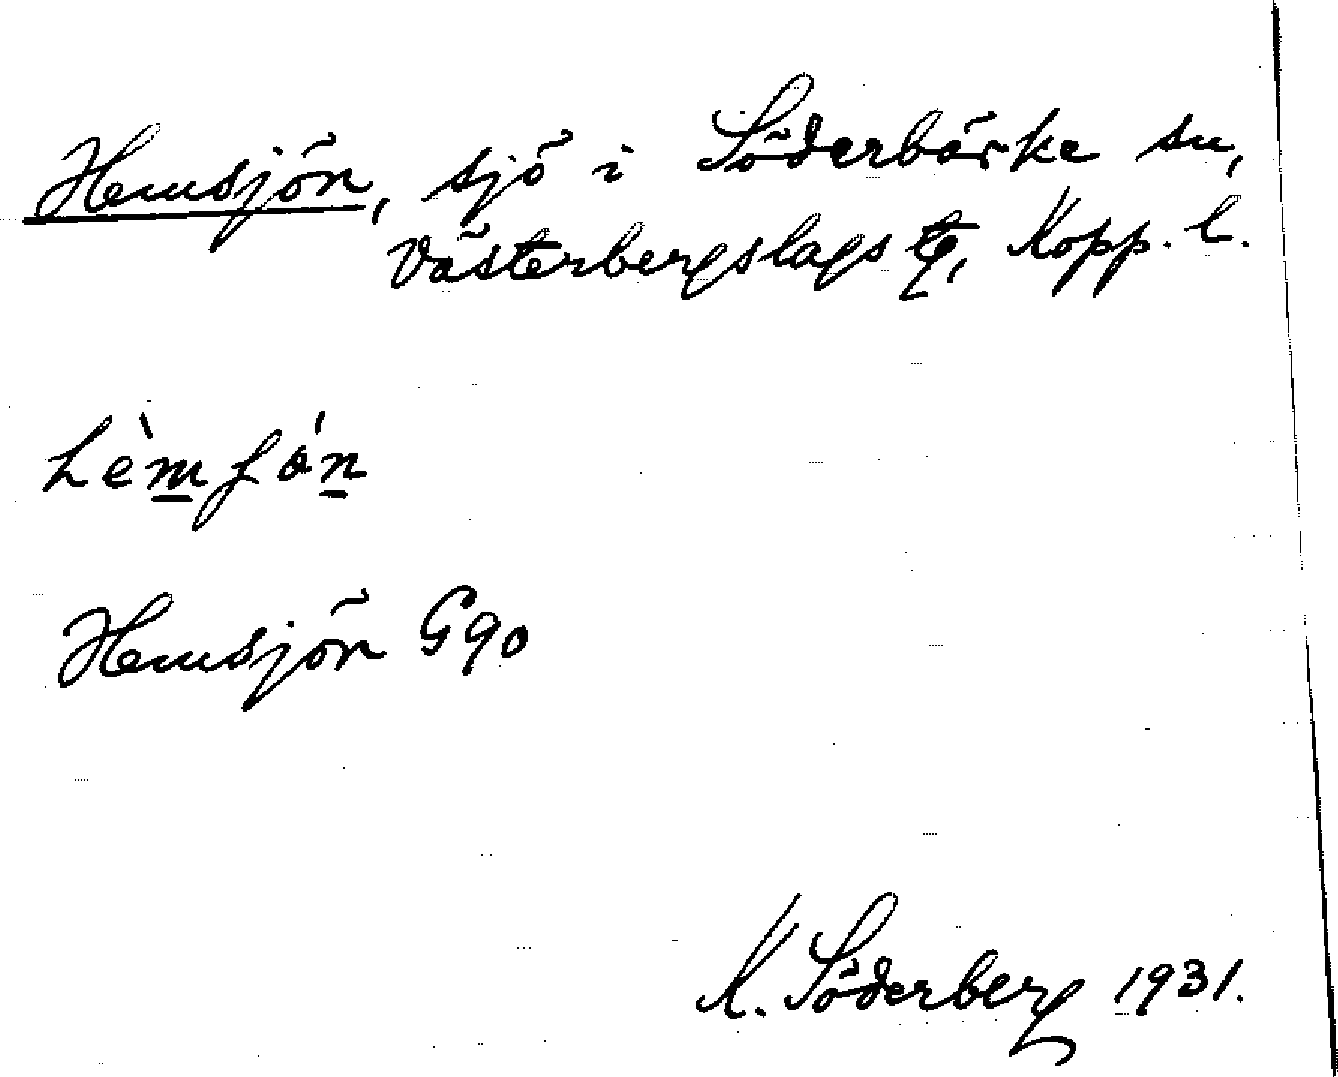 Hemsjön, sjö i Söderbärke sn,
Västerbergslags tg, Kopp. l.
hèmʃón
Hemsjön G90
K. Söderberg 1931.